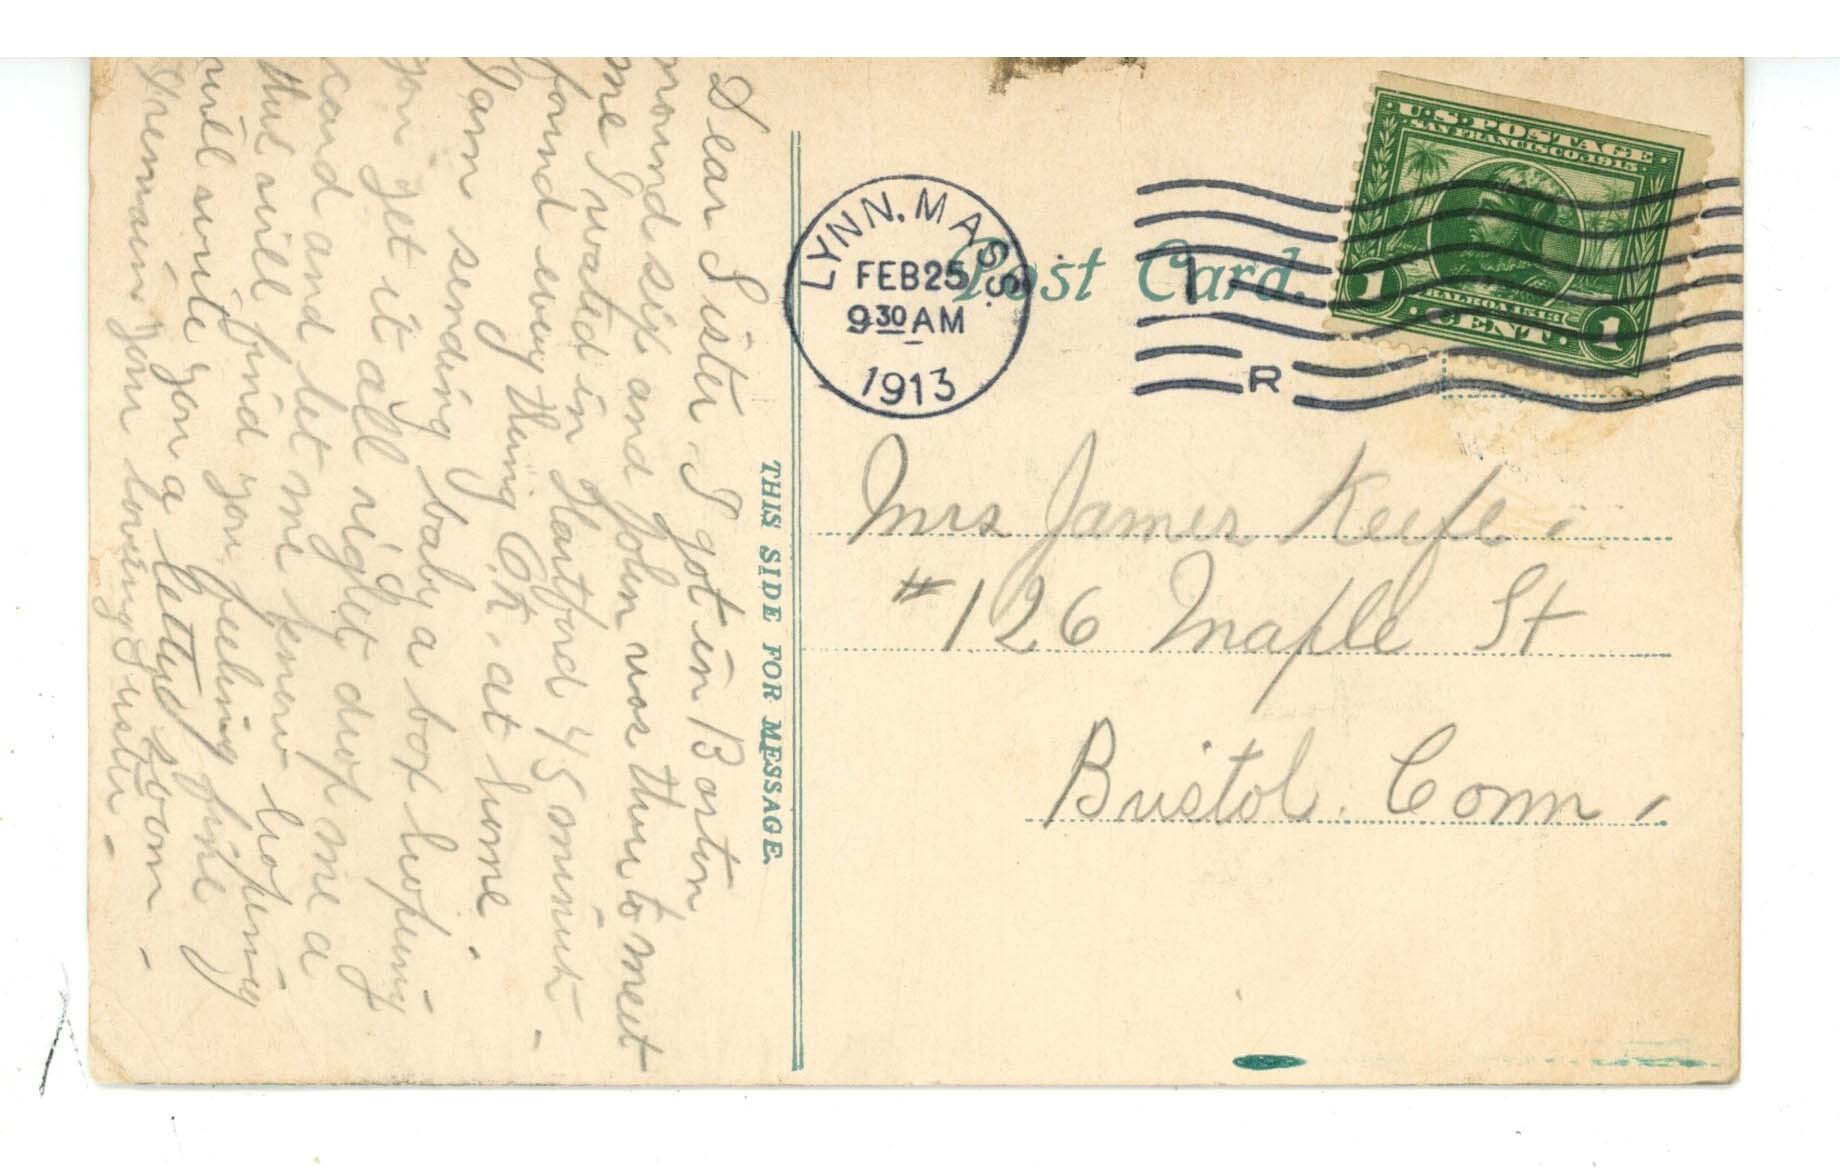 Dear Sister, I got in Boston
round six and John was thur to meet
me I wated in Hartford 45 minute -
found every thing O.K. at home.
I am sending baby a box hopeing
you get it all right drop me a
card and let me know hopeing
this will find you feeling fine
will write you a letter soon -
I remain your loving Sister -
THIS SIDE FOR MESSAGE.
Post Card.
LYNN, MASS.
FEB 25
9 30 AM
1913
1
R
U.S. POSTAGE
SAN FRANCISCO 1915
BALBOA 1513
1 CENT. 1
Mrs James Keefe.
#126 Maple St
Bristol. Conn.